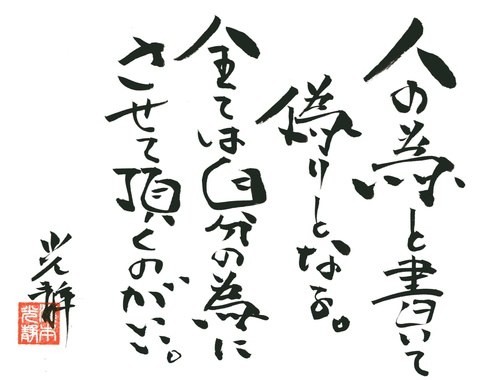 人の為と書いて
偽りとなる。
全ては自分の為に
させて頂くのがいい。
光静